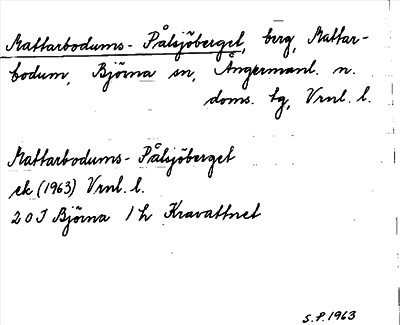 Mattarbodums-Pålsjöberget, berg, Mattar-
bodum, Björna sn, Ångermanl. n.
doms. tg, Vrnl. l.
Mattarbodums-Pålsjöberget
ek (1963) Vrnl. l.
20J Björna 1h Kravattnet
S.P. 1963